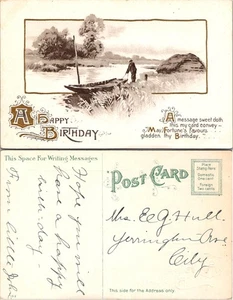 A Happy
Birthday
A message sweet doth
this my card convey
May Fortune's favours
gladden thy Birthday.
This Space For Writing Messages
POST CARD
Place Stamp Here
Domestic
One Cent
Foreign
Two Cents
Hope you will
have a happy
birthday
From
Mrs. E. G. Hull.
Yerrington Ave
City
This side for the Address only.